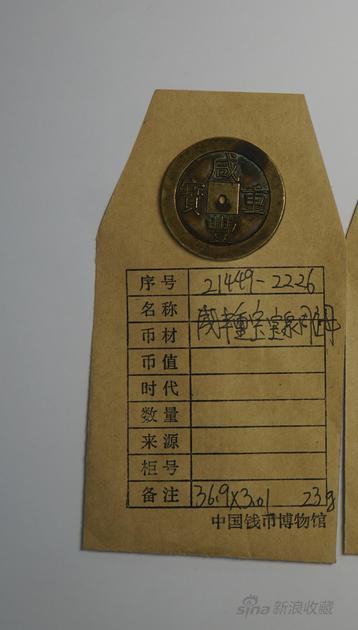 咸豐重寶
序号 21449-2226
名称 咸丰重宝宝泉局母
币材
币值
时代
数量
来源
柜号
备注 36.9×3.01 23g
中国钱币博物馆
sina 新浪收藏